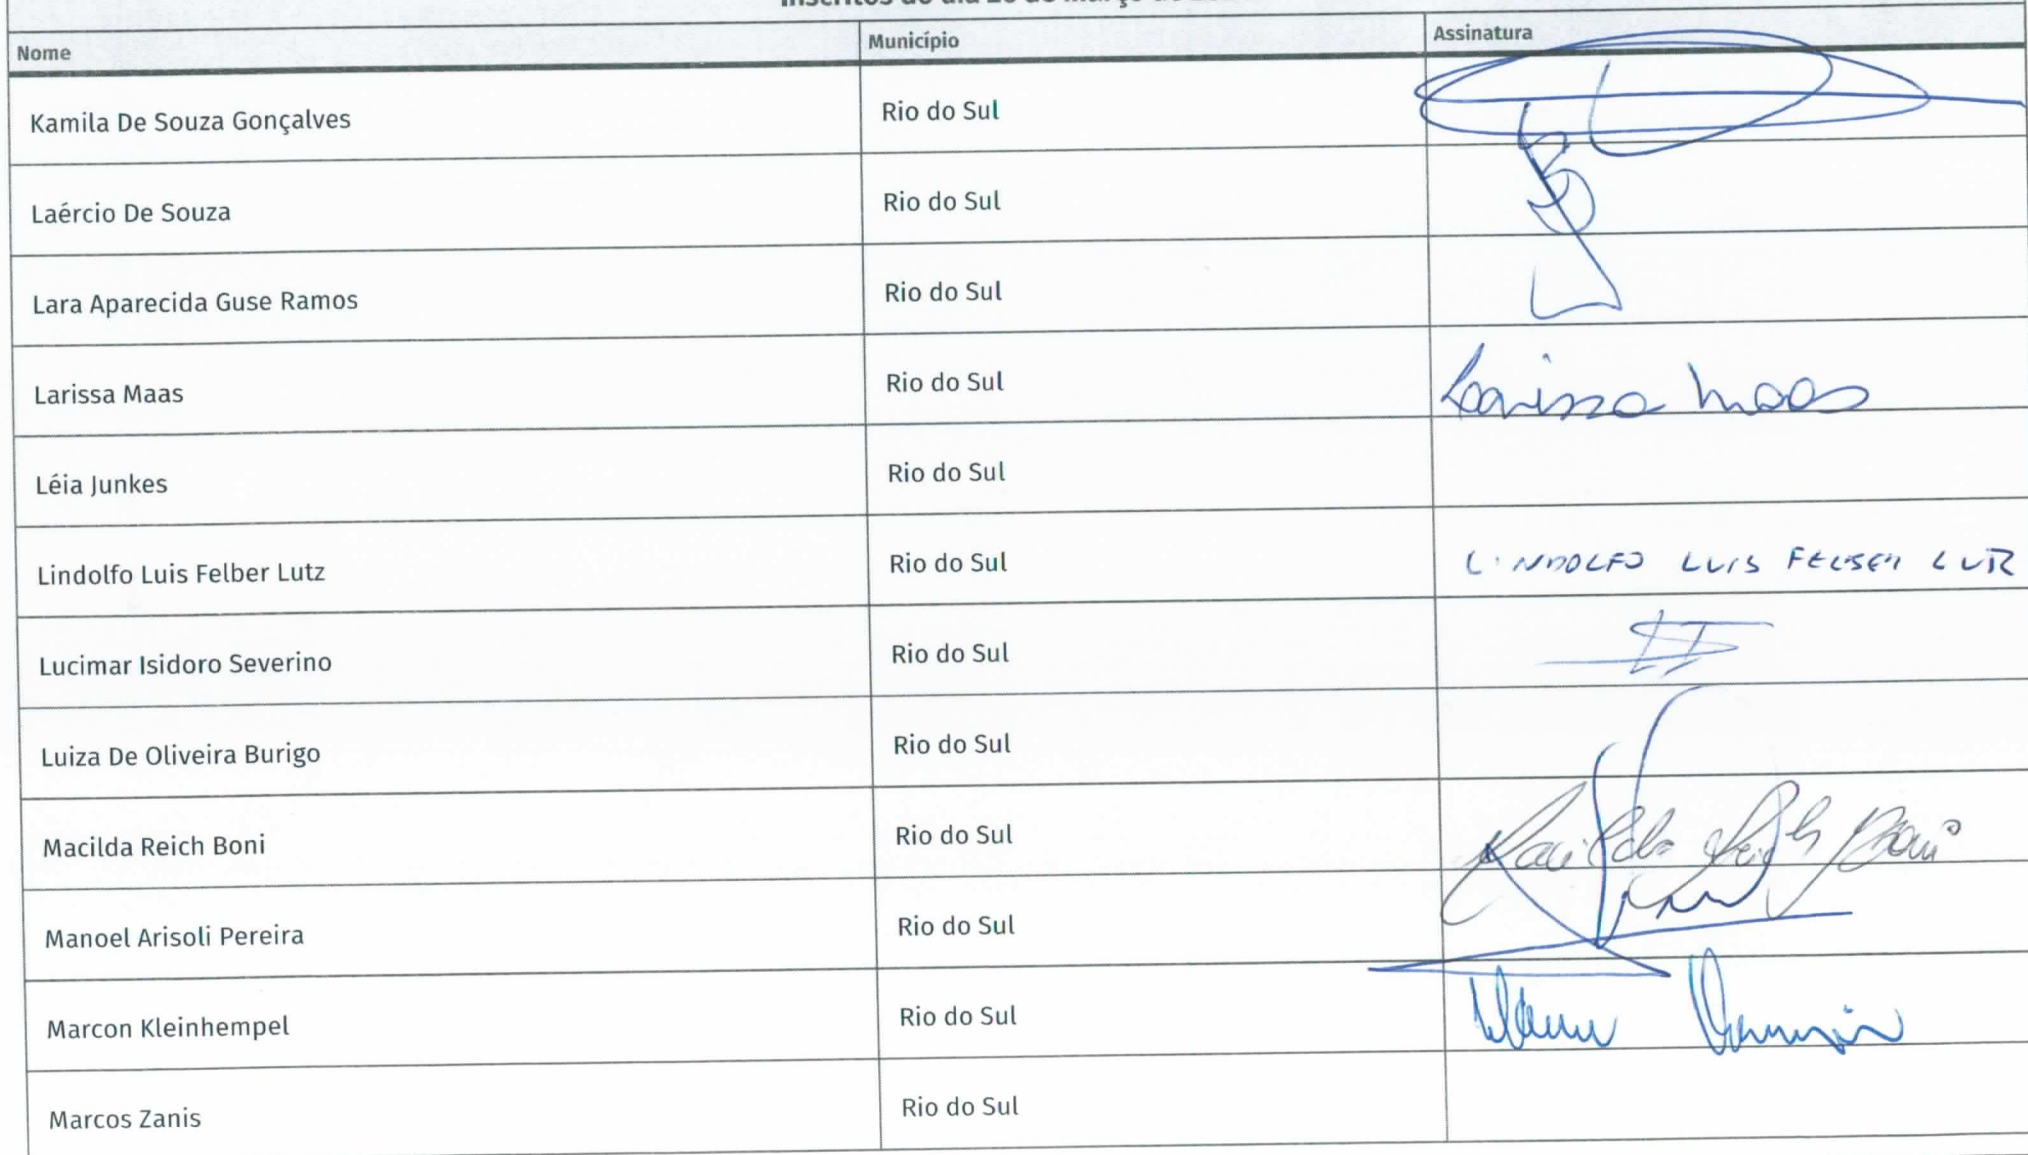 Inscritos do dia 20 de março de
Nome Município Assinatura
Kamila De Souza Gonçalves Rio do Sul
Laércio De Souza Rio do Sul
Lara Aparecida Guse Ramos Rio do Sul
Larissa Maas Rio do Sul Larissa Maas
Léia Junkes Rio do Sul
Lindolfo Luis Felber Lutz Rio do Sul LINDOLFO LUIS FELBER LUTZ
Lucimar Isidoro Severino Rio do Sul
Luiza De Oliveira Burigo Rio do Sul
Macilda Reich Boni Rio do Sul Macilda Reich Boni
Manoel Arisoli Pereira Rio do Sul
Marcon Kleinhempel Rio do Sul
Marcos Zanis Rio do Sul